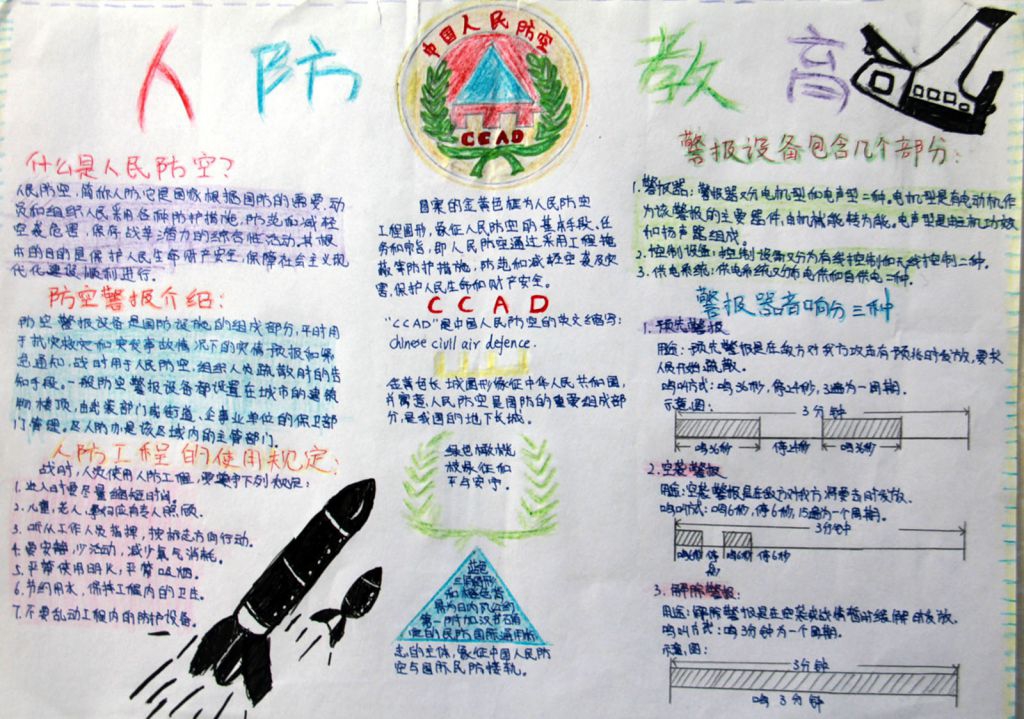 人防教育
中国人民防空
CCAD
什么是人民防空?
人民防空,简称人防。它是国家根据国防的需要,动
员和组织人民采用各种防护措施,防范和减轻
空袭危害,保存战争潜力的综合性活动。其根
本的目的是保护人民生命财产安全,保障社会主义现
代化建设顺利进行。
防空警报介绍:
防空警报设备是国防设施的组成部分,平时用
于抗灾救灾和突发事故情况下的灾情预报和紧
急通知,战时用于人民防空,组织人员疏散时的告
知手段。一般防空警报设备都设置在城市的建筑
物楼顶,由武装部门或街道、企事业单位的保卫部
门管理。区人防办是该区域内的主管部门。
人防工程的使用规定:
战时,人员使用人防工程,要遵守下列规定:
1.进入时要尽量缩短时间。
2.儿童,老人,孕妇应有专人照顾。
3.听从工作人员指挥,按标志方向行动。
4.要安静,少活动,减少氧气消耗。
5.严禁使用明火,严禁吸烟。
6.节约用水,保持工程内的卫生。
7.不要乱动工程内的防护设备。
图案的金黄色框为人民防空
工程图形,象征人民防空的基本手段、任
务和宗旨,即人民防空通过采用工程掩
蔽等防护措施,防范和减轻空袭及灾
害,保护人民生命和财产安全。
CCAD
“CCAD”是中国人民防空的英文缩写:
chinese civil air defence.
金黄色长城图形象征中华人民共和国,
并寓意人民防空是国防的重要组成部
分,是我国的地下长城。
绿色橄榄
枝象征和
平与安宁。
蓝色
三角图形
和橙色背
景为日内瓦公约
第一附加议书石角
定的民防国际通用标
志的主体,象征中国人民防
空与国际民防接轨。
警报设备包含几个部分:
1.警报器:警报器又分电机型和电声型二种。电机型是有电动机作
为该警报的主要器件,由机械能转为能。电声型是由主机功放
和扬声器组成。
2.控制设备:控制设备又分为有线控制和无线控制二种。
3.供电系统:供电系统又分市电供和自供电二种。
警报器音响分三种
1.预先警报
用途:预先警报是在敌方对我方攻击有预兆时发放,要求
人民开始疏散。
鸣叫方式:鸣36秒,停24秒,3遍为一周期。
示意图:
3分钟
鸣36秒 停24秒 鸣36秒
2.空袭警报
用途:空袭警报是在敌方对我方将要袭击时发放。
鸣叫方式:鸣6秒,停6秒,15遍为一个周期。
3分钟
鸣6秒 停6秒 鸣6秒 停6秒
3.解除警报:
用途:解除警报是在空袭或战情暂时缓解时发放。
鸣叫方式:鸣3分钟为一个周期。
示意图:
3分钟
鸣3分钟